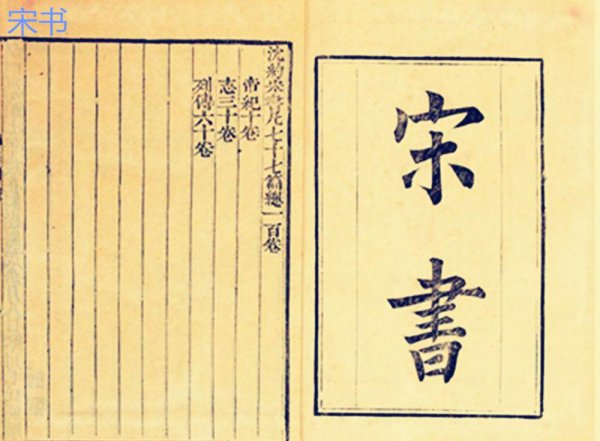 宋书
宋書
沈約宋書凡七十七篇總一百卷
帝紀十卷
志三十卷
列傳六十卷